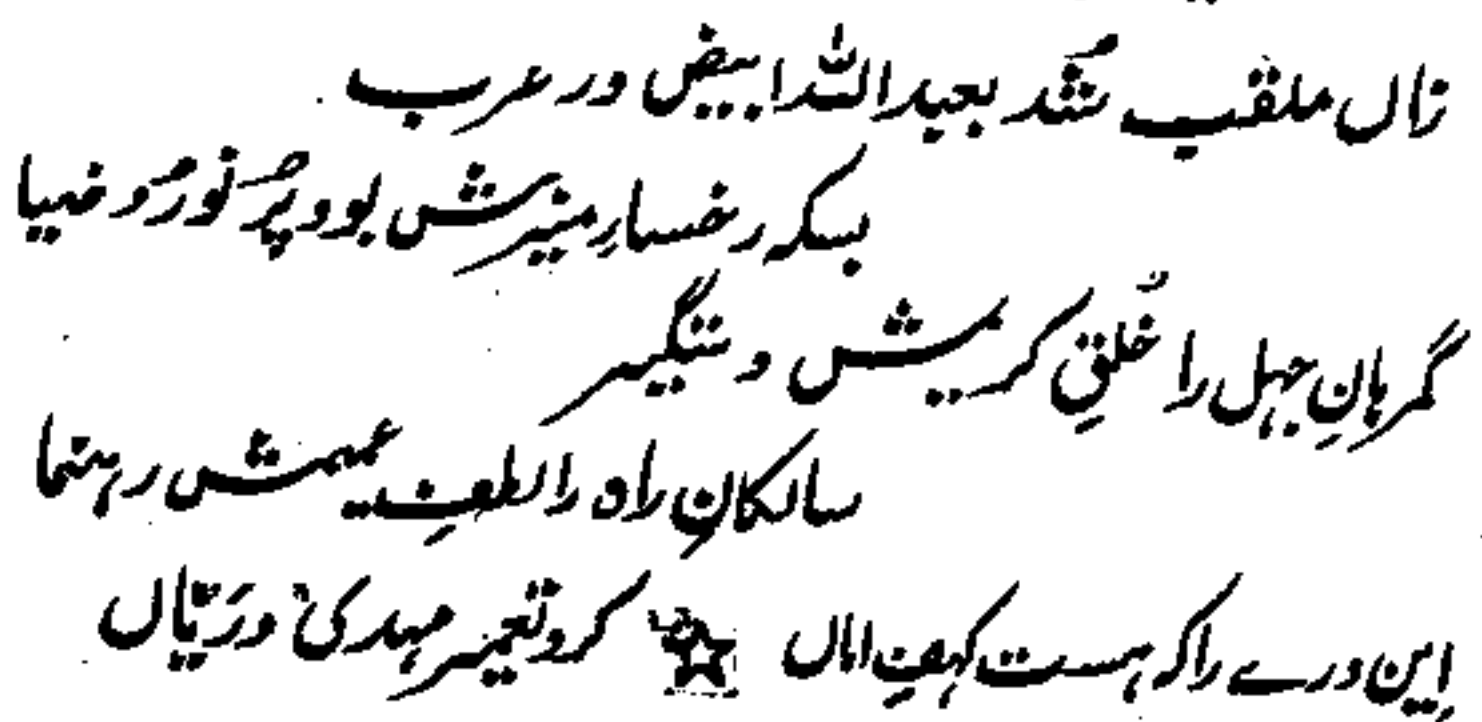 زاں ملقب شُد بعبداللہ ابیض در عرب
بسکہ رخسارِ منیرش بود پُر نُور و ضیا
گمرہانِ جہل را خُلقِ کریمش دستگیر
سالکانِ راہ را لطفِ عمیمش رہنما
اِین درے را کہ ہست کہفِ اماں کرد تعمیر مہدی